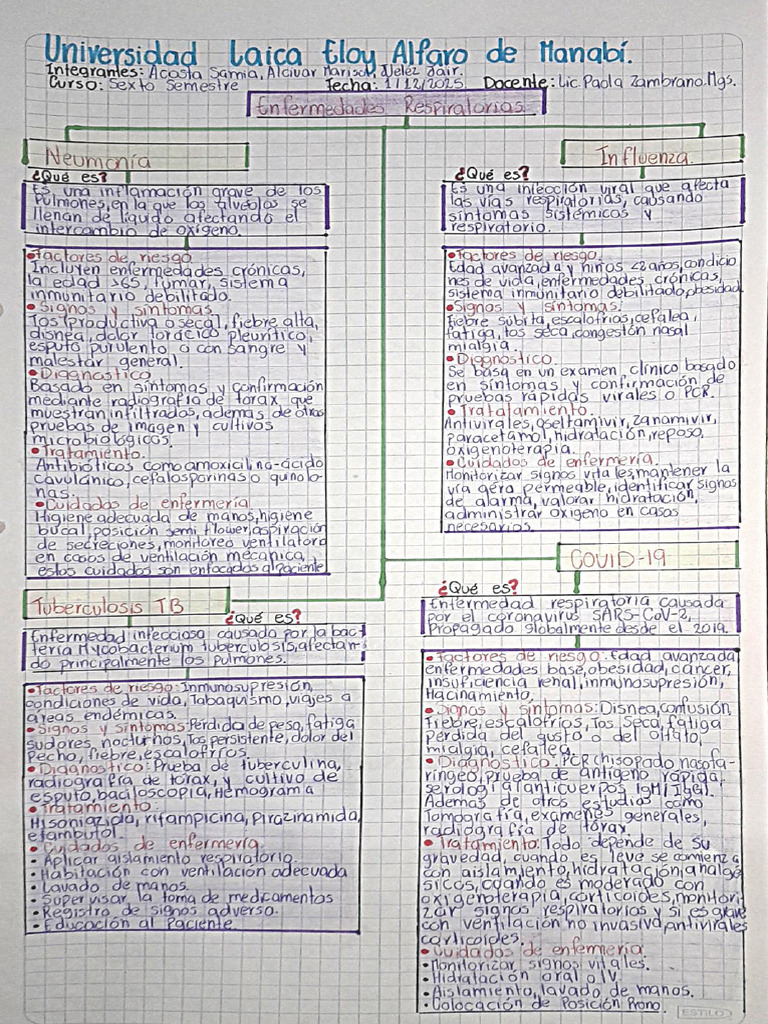 Universidad Laica Eloy Alfaro de Manabí.
Integrantes: Acosta Samia, Alcivar Marisol, Velez Jair.
Curso: Sexto Semestre Fecha: 1/12/2025 Docente: Lic. Paola Zambrano. Mgs.
Enfermedades Respiratorias
Neumonía
¿Qué es?
Es una inflamación grave de los
Pulmones, en la que los alveolos se
llenan de líquido afectando el
intercambio de oxígeno.
•Factores de riesgo
Incluyen enfermedades crónicas,
la edad >65, fumar, sistema
inmunitario debilitado.
•Signos y síntomas
Tos (productiva o seca), fiebre alta,
disnea, dolor torácico pleurítico,
esputo purulento o con sangre y
malestar general.
•Diagnostico
Basado en síntomas y confirmación
mediante radiografía de tórax, que
muestran infiltrados, ademas de otras
pruebas de imagen y cultivos
microbiológicos.
•Tratamiento.
Antibióticos como amoxicilina-ácido
cavulánico, cefalosporinas o quinolo-
nas.
•Cuidados de enfermería
Higiene adecuada de manos, higiene
bucal, posición semi flower, aspiración
de secreciones, monitoreo ventilatorio
en casos de ventilación mecánica,
estos cuidados son enfocados al paciente
Influenza.
¿Qué es?
Es una infección viral que afecta
las vías respiratorias, causando
síntomas sistémicos y
respiratorio.
•Factores de riesgo.
Edad avanzada y niños <2 años, condicio
nes de vida, enfermedades crónicas,
sistema inmunitario debilitado, obesidad
•Signos y síntomas.
Fiebre súbita, escalofríos, cefalea,
fatiga, tos seca, congestión nasal
mialgia.
•Diagnostico.
Se basa en un examen clínico basado
en síntomas y confirmación de
pruebas rápidas virales o PCR.
•Tratalamiento.
Antivirales, oseltamivir, zanamivir,
paracetamol, hidratación, reposo,
oxigenoterapia.
•Cuidados de enfermería.
Monitorizar signos vitales, mantener la
vía aéra permeable, identificar signos
de alarma, valorar hidratación,
administrar oxigeno en casos
necesarios.
Tuberculosis TB
¿Qué es?
Enfermedad infecciosa causada por la bac
teria Mycobacterium tuberculosis, afectan-
do principalmente los pulmones.
•Factores de riesgo: Inmunosupresión,
condiciones de vida, Tabaquismo, viajes a
áreas endémicas.
•Signos y síntomas: Perdida de peso, fatiga
sudores, nocturnos, Tos persistente, dolor del
Pecho, fiebre, escalofríos.
•Diagnostico: Prueba de tuberculina,
radiografía de tórax, y cultivo de
esputo, baciloscopia, Hemograma
•Tratamiento:
Hisoniazida, rifampicina, Pirazinamida,
etambutol.
•Cuidados de enfermería.
• Aplicar aislamiento respiratorio.
• Habitación con ventilación adecuada
• Lavado de manos.
• Supervisar la toma de medicamentos
• Registro de signos adverso.
• Educación al Paciente
COVID-19
¿Qué es?
Enfermedad respiratoria causada
por el coronavirus SARS-CoV-2,
Propagado globalmente desde el 2019.
•Factores de riesgo: Edad avanzada,
enfermedades base, obesidad, cáncer,
insuficiencia renal, inmunosupresión,
Hacinamiento.
•Signos y síntomas: Disnea, confusión,
Fiebre, escalofríos, Tos Seca, fatiga
Perdida del gusto o del olfato,
mialgia, cefalea.
•Diagnostico: PCR chisopado nasofa-
ríngeo, prueba de antígeno rápida,
serología (anticuerpos IgM/IgG).
Ademas de otros estudios como
Tomografía, exámenes generales,
radiografía de tórax.
•Tratamiento: Todo depende de su
gravedad, cuando es leve se comienza
con aislamiento, hidratación, analgé
sicos, cuando es moderado con
oxigenoterapia, corticoides, monitori
zar signos respiratorios y si es grave
con ventilación no invasiva, antivirales
corticoides.
•Cuidados de enfermería.
• Monitorizar signos vitales.
• Hidratación oral o IV.
• Aislamiento, lavado de manos.
• Colocación de Posición Prono.
ESTILO